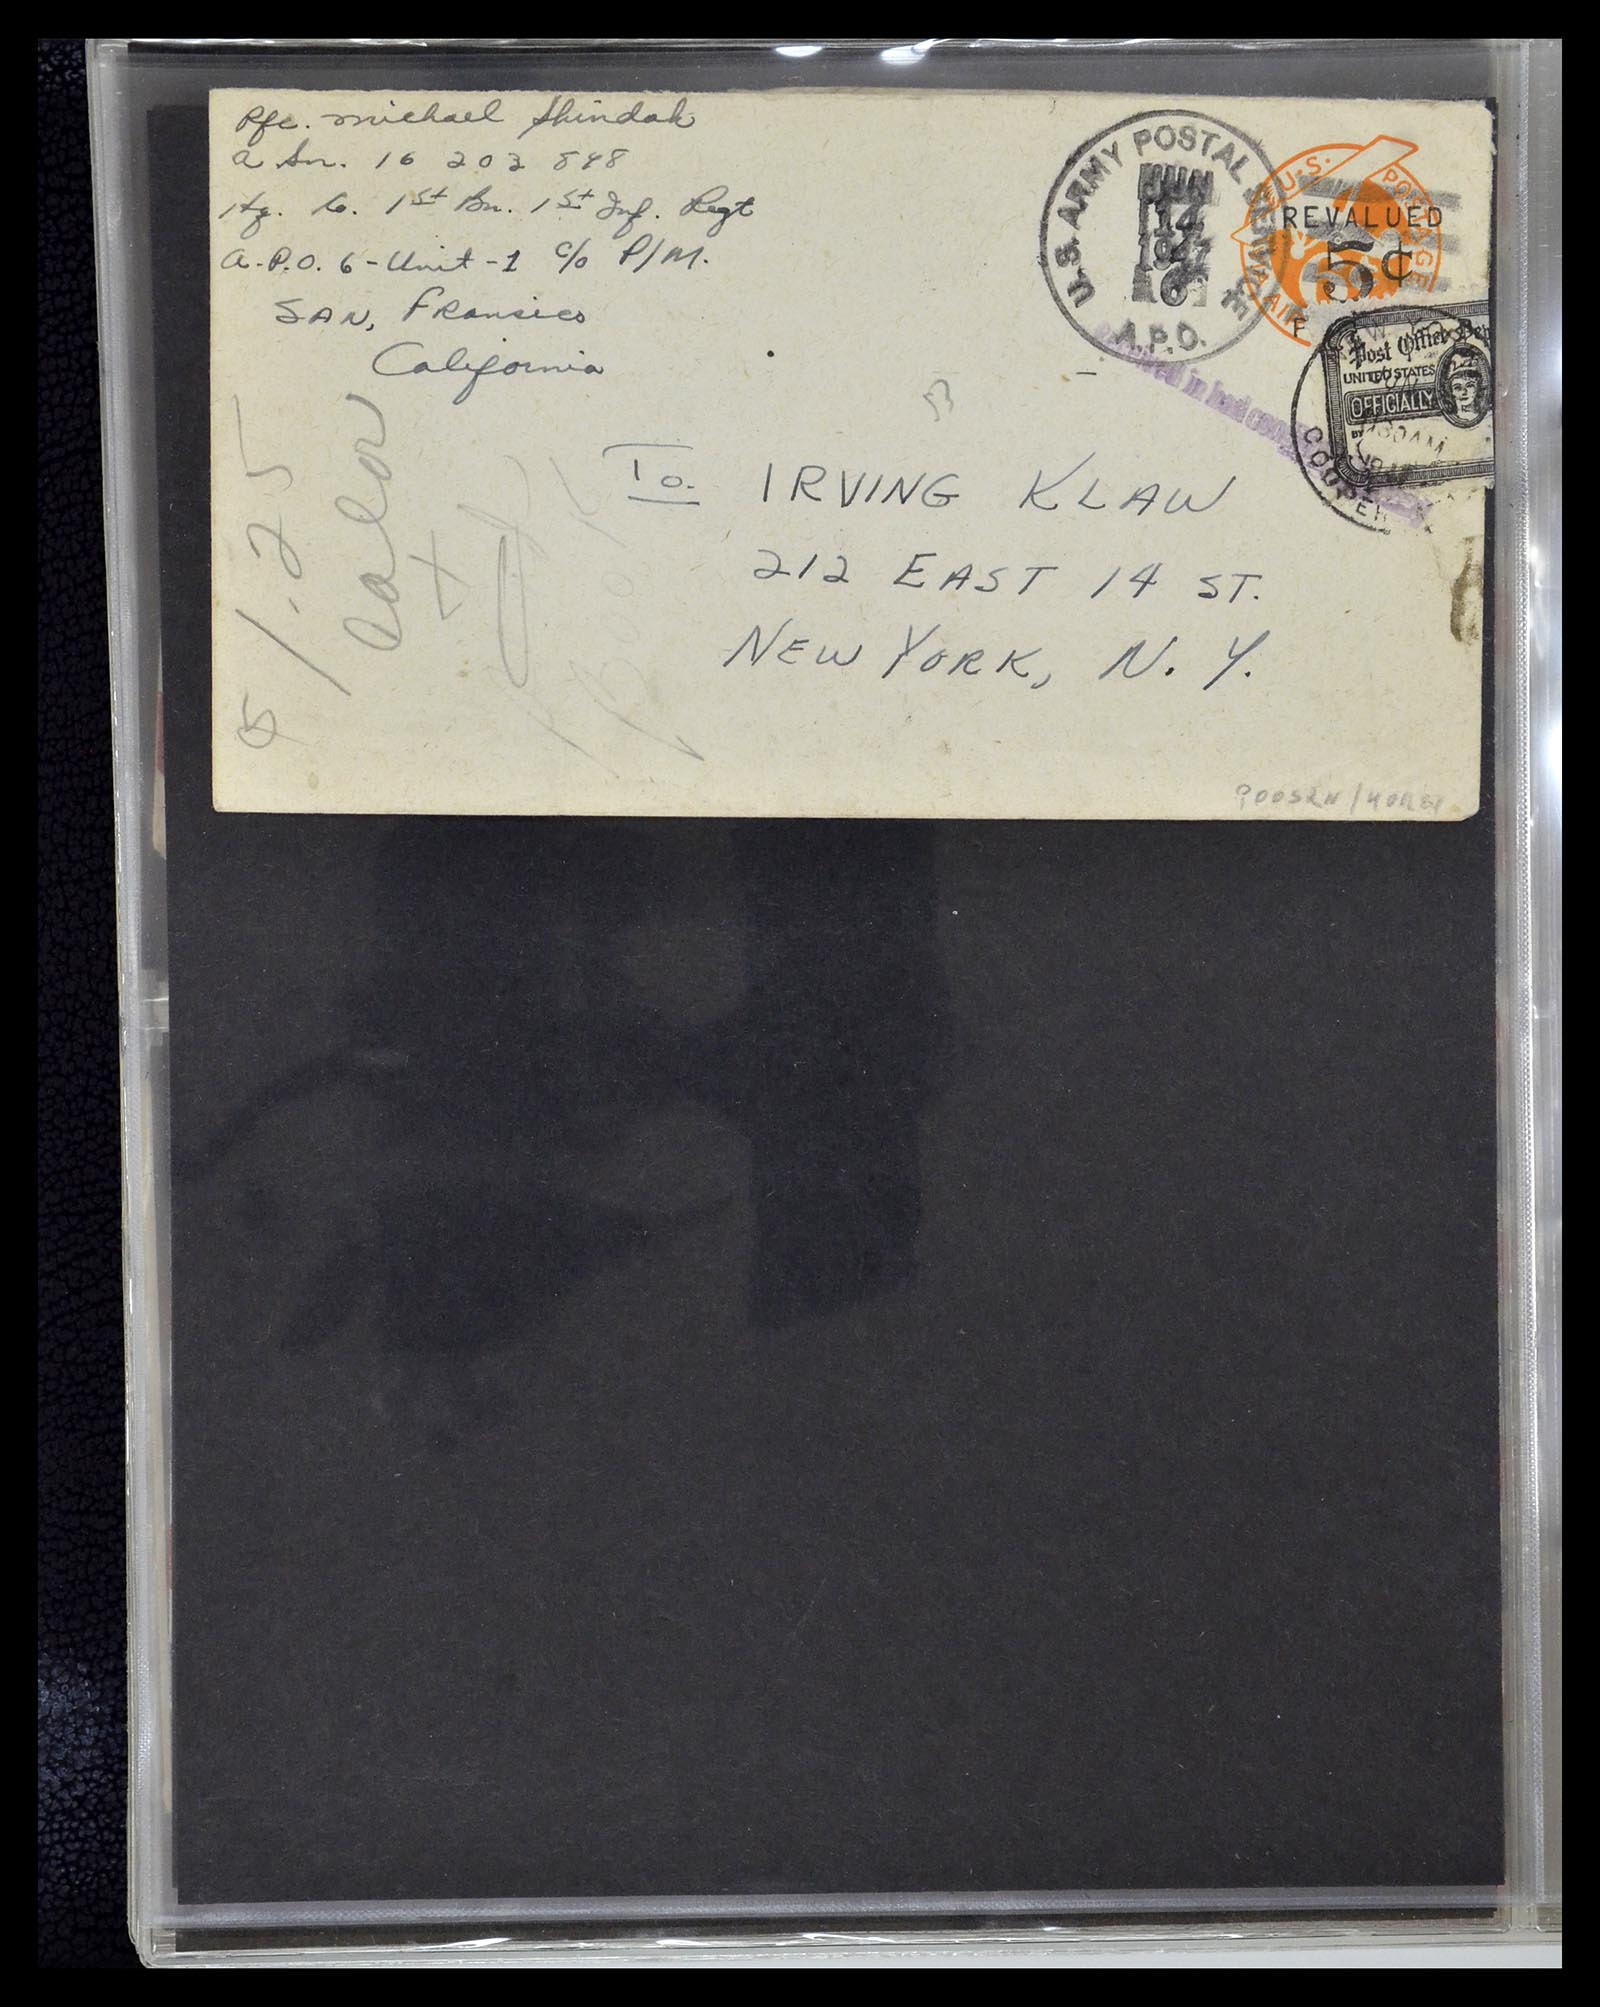 Pfc. Michael Shindak
A Sn. 16 203 848
Hq. Co. 1st Bn. 1st Inf. Regt
A.P.O. 6 - Unit - 1 c/o P/M.
SAN, FRansico
California
U.S. ARMY POSTAL SERVICE
JUN
14
1947
A.P.O.
U.S. POSTAGE
AIR
REVALUED
5¢
Post Office Dep
UNITED STATES
OFFICIALLY
BY
30AM
COOPER
Received in bad
To. IRVING KLAW
212 EAST 14 ST.
NEW YORK, N. Y.
$ 1.25
Color
+
Book